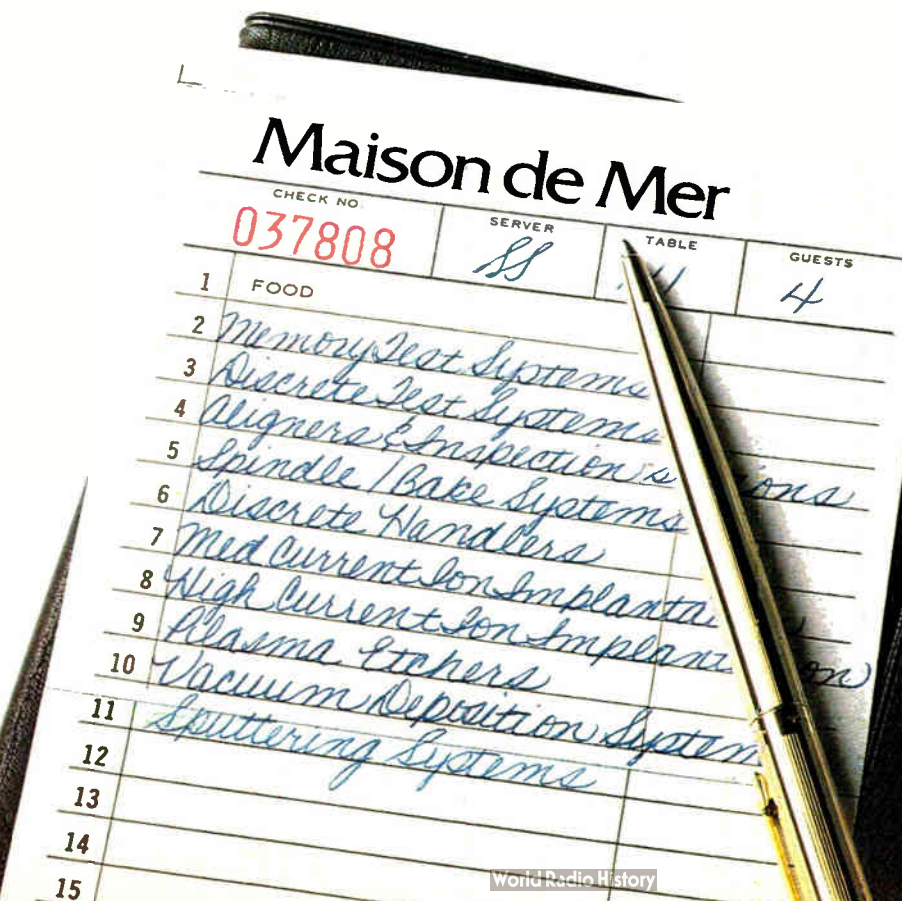 Maison de Mer
CHECK NO. SERVER TABLE GUESTS
037808 SS 4
1 FOOD
2 Memory Test Systems
3 Discrete Test Systems
4 Aligners & Inspection s ions
5 Spindle/Bake Systems
6 Discrete Handlers
7 Med Current Ion Implanta
8 High Current Ion Implant on
9 Plasma Etchers
10 Vacuum Deposition System
11 Sputtering Systems
12
13
14
15
World Radio History